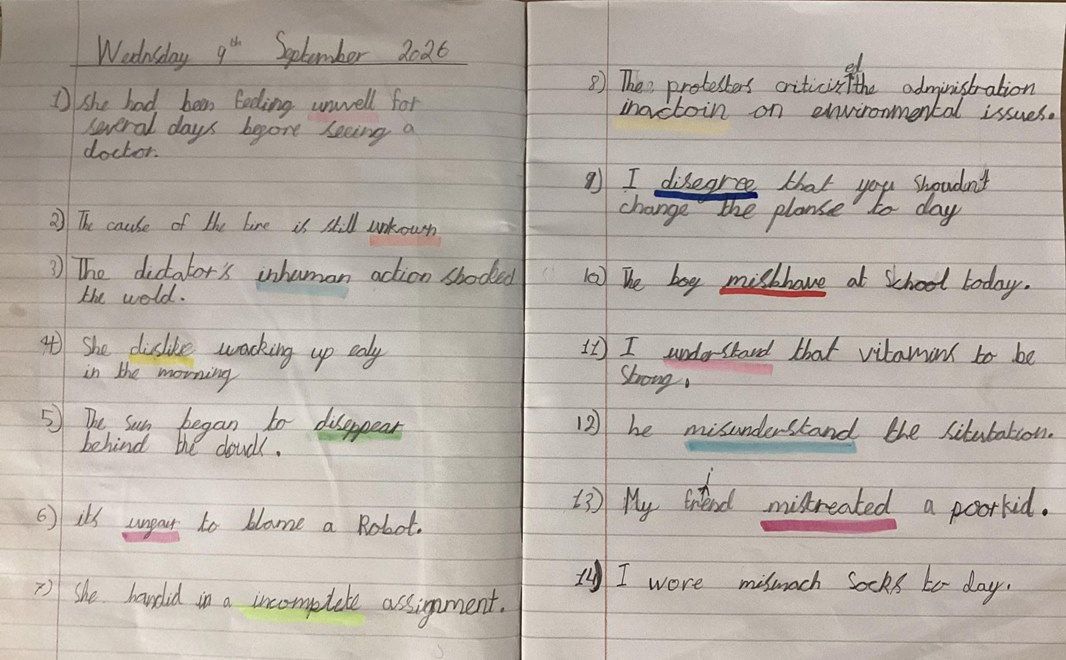 Wednsday 9th September 2026
1) She had been feeling unwell for
several days before seeing a
doctor.
2) The cause of the fire is still unkown
3) The dictator's inhuman action shocked
the wold.
4) She dislike wacking up ealy
in the morning
5) The sun began to diseppear
behind the clouds.
6) its unfair to blame a Robot.
7) She handid in a incomplete assignment.
8) The protesters criticized the administration
inactoin on environmental issues.
9) I disegree that you shoudn't
change the planse to day
10) The boy misbhave at School today.
11) I understand that vitamins to be
Strong.
12) he misunderstand the situbation.
13) My friend mistreated a poor kid.
14) I wore mismach Socks to day.